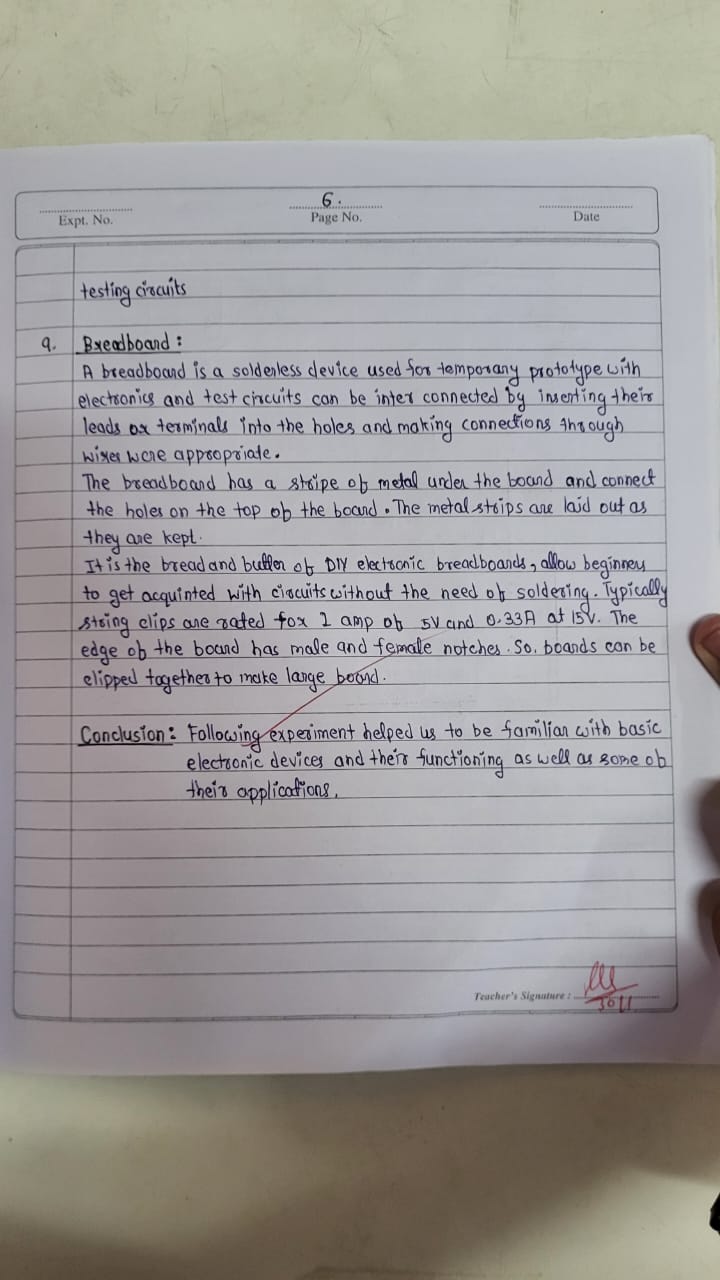 6.
Expt. No.
Page No.
Date
testing circuits
9. Breadboard :
A breadboard is a solderless device used for temporary prototype with
electronics and test circuits can be inter connected by inserting their
leads or terminals into the holes and making connections through
wires were appropriate.
The breadboard has a stripe of metal under the board and connect
the holes on the top of the board. The metal strips are laid out as
they are kept.
It is the bread and butter of DIY electronic breadboards, allow beginners
to get acquinted with circuits without the need of soldering. Typically
string clips are rated for 1 amp of 5V and 0.33A at 15V. The
edge of the board has male and female notches. So. boards can be
clipped together to make large board.
Conclusion : Following experiment helped us to be familiar with basic
electronic devices and their functioning as well as some of
their applications.
Teacher's Signature :